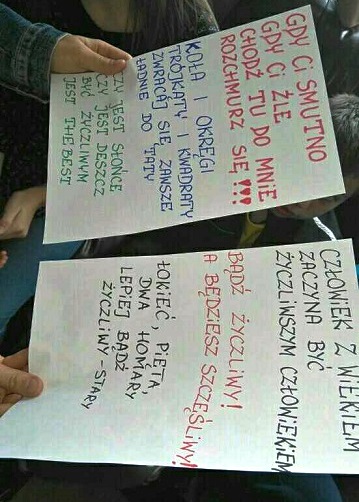 GDY CI SMUTNO
GDY CI ŹLE
CHODŹ TU DO MNIE
ROZCHMURZ SIĘ!!!
KOŁA I OKRĘGI
TRÓJKĄTY I KWADRATY
ZWRACAJ SIĘ ZAWSZE
ŁADNIE DO TATY
CZY JEST SŁOŃCE
CZY JEST DESZCZ
BYĆ ŻYCZLIWYM
JEST THE BEST
CZŁOWIEK Z WIEKIEM
ZACZYNA BYĆ
ŻYCZLIWSZYM CZŁOWIEKIEM
BĄDŹ ŻYCZLIWY!
A BĘDZIESZ SZCZĘŚLIWY!
ŁOKIEĆ, PIĘTA,
DWA HOMARY
LEPIEJ BĄDŹ
ŻYCZLIWY - STARY